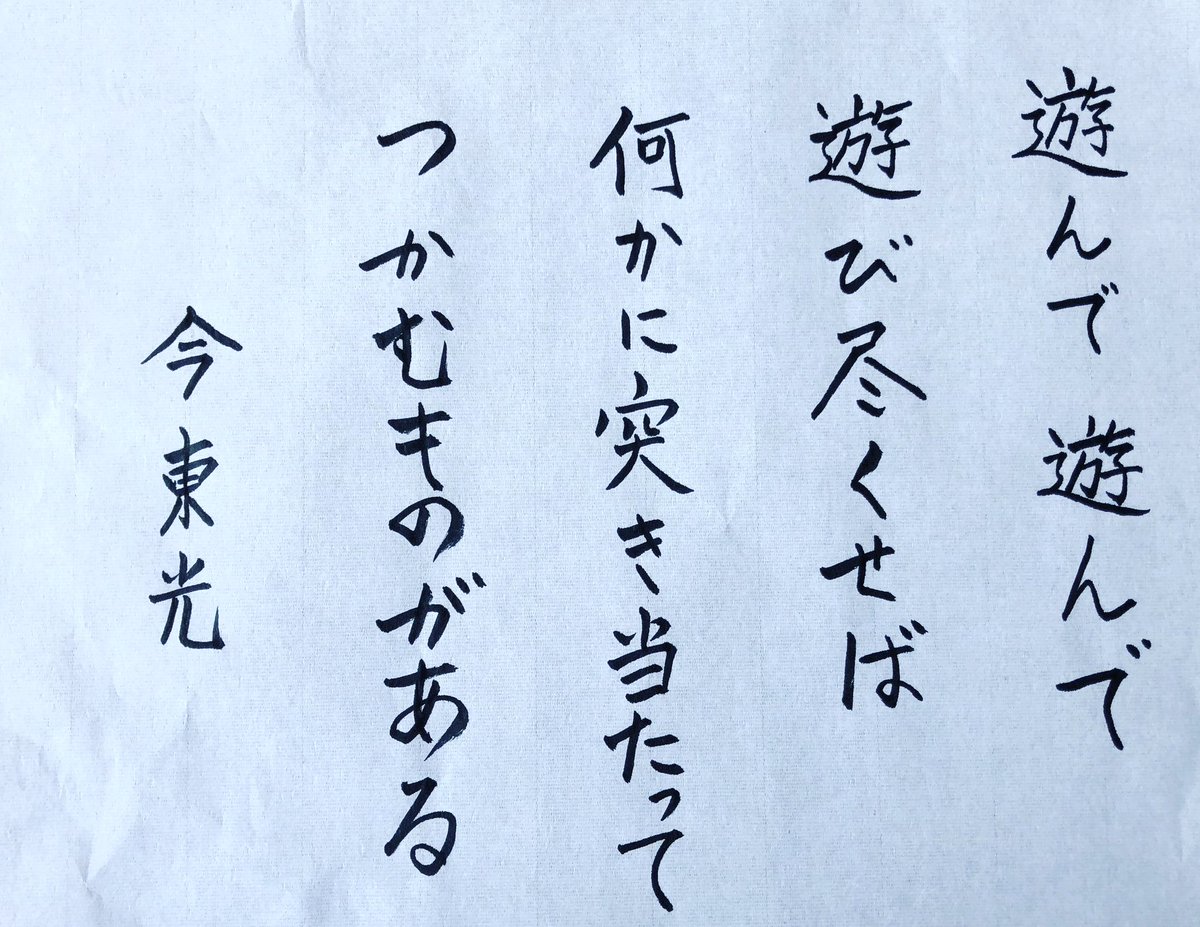 遊んで遊んで
遊び尽くせば
何かに突き当たって
つかむものがある
今東光